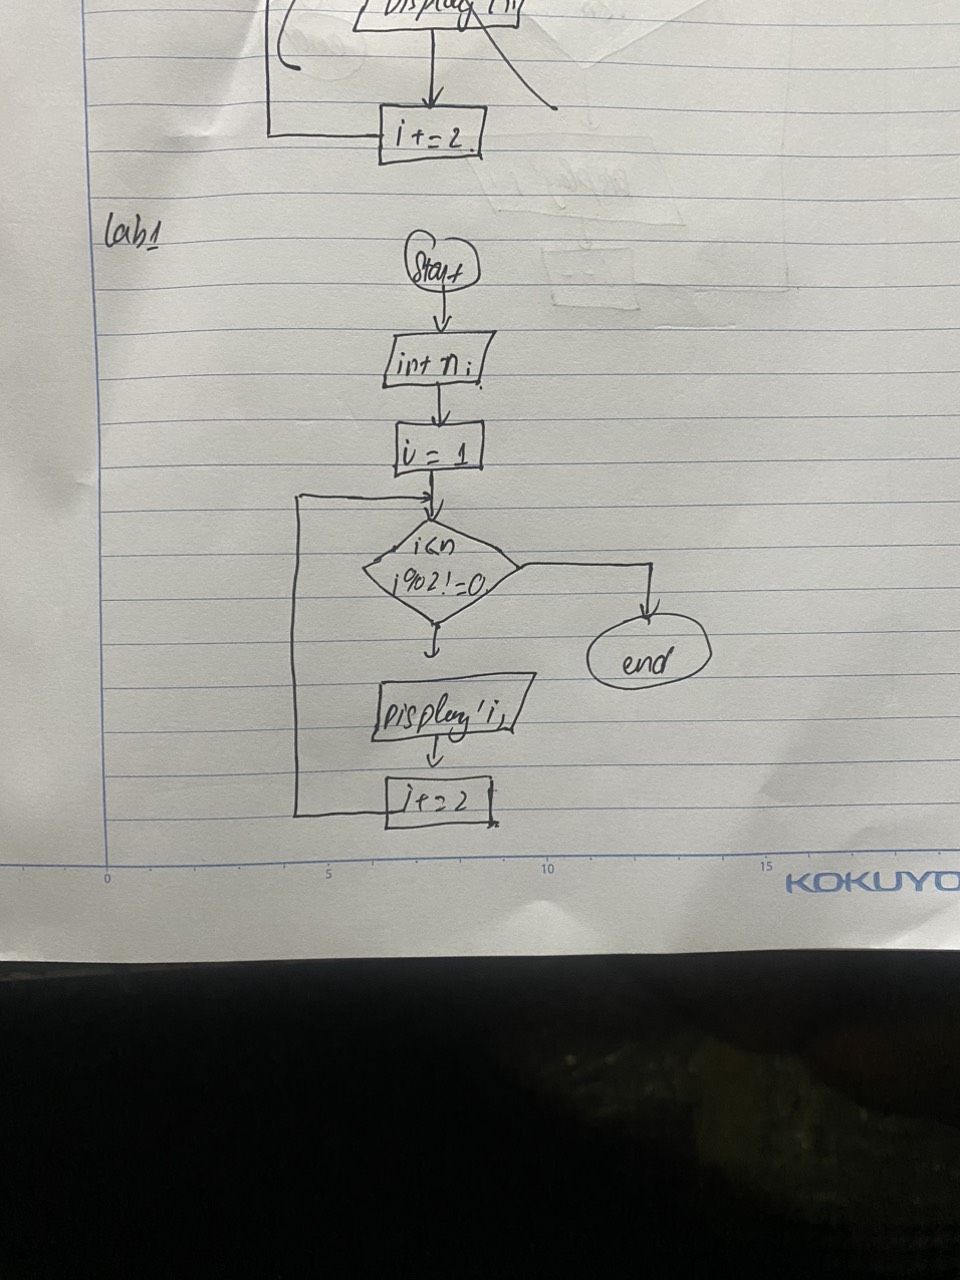 Display 'i,
i += 2
lab1
Start
int n;
i = 1
i<n
i%2!=0
end
Display 'i,
i+=2
0 5 10 15
KOKUYO